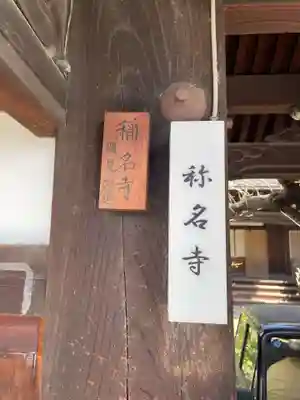 稱名寺
称名寺